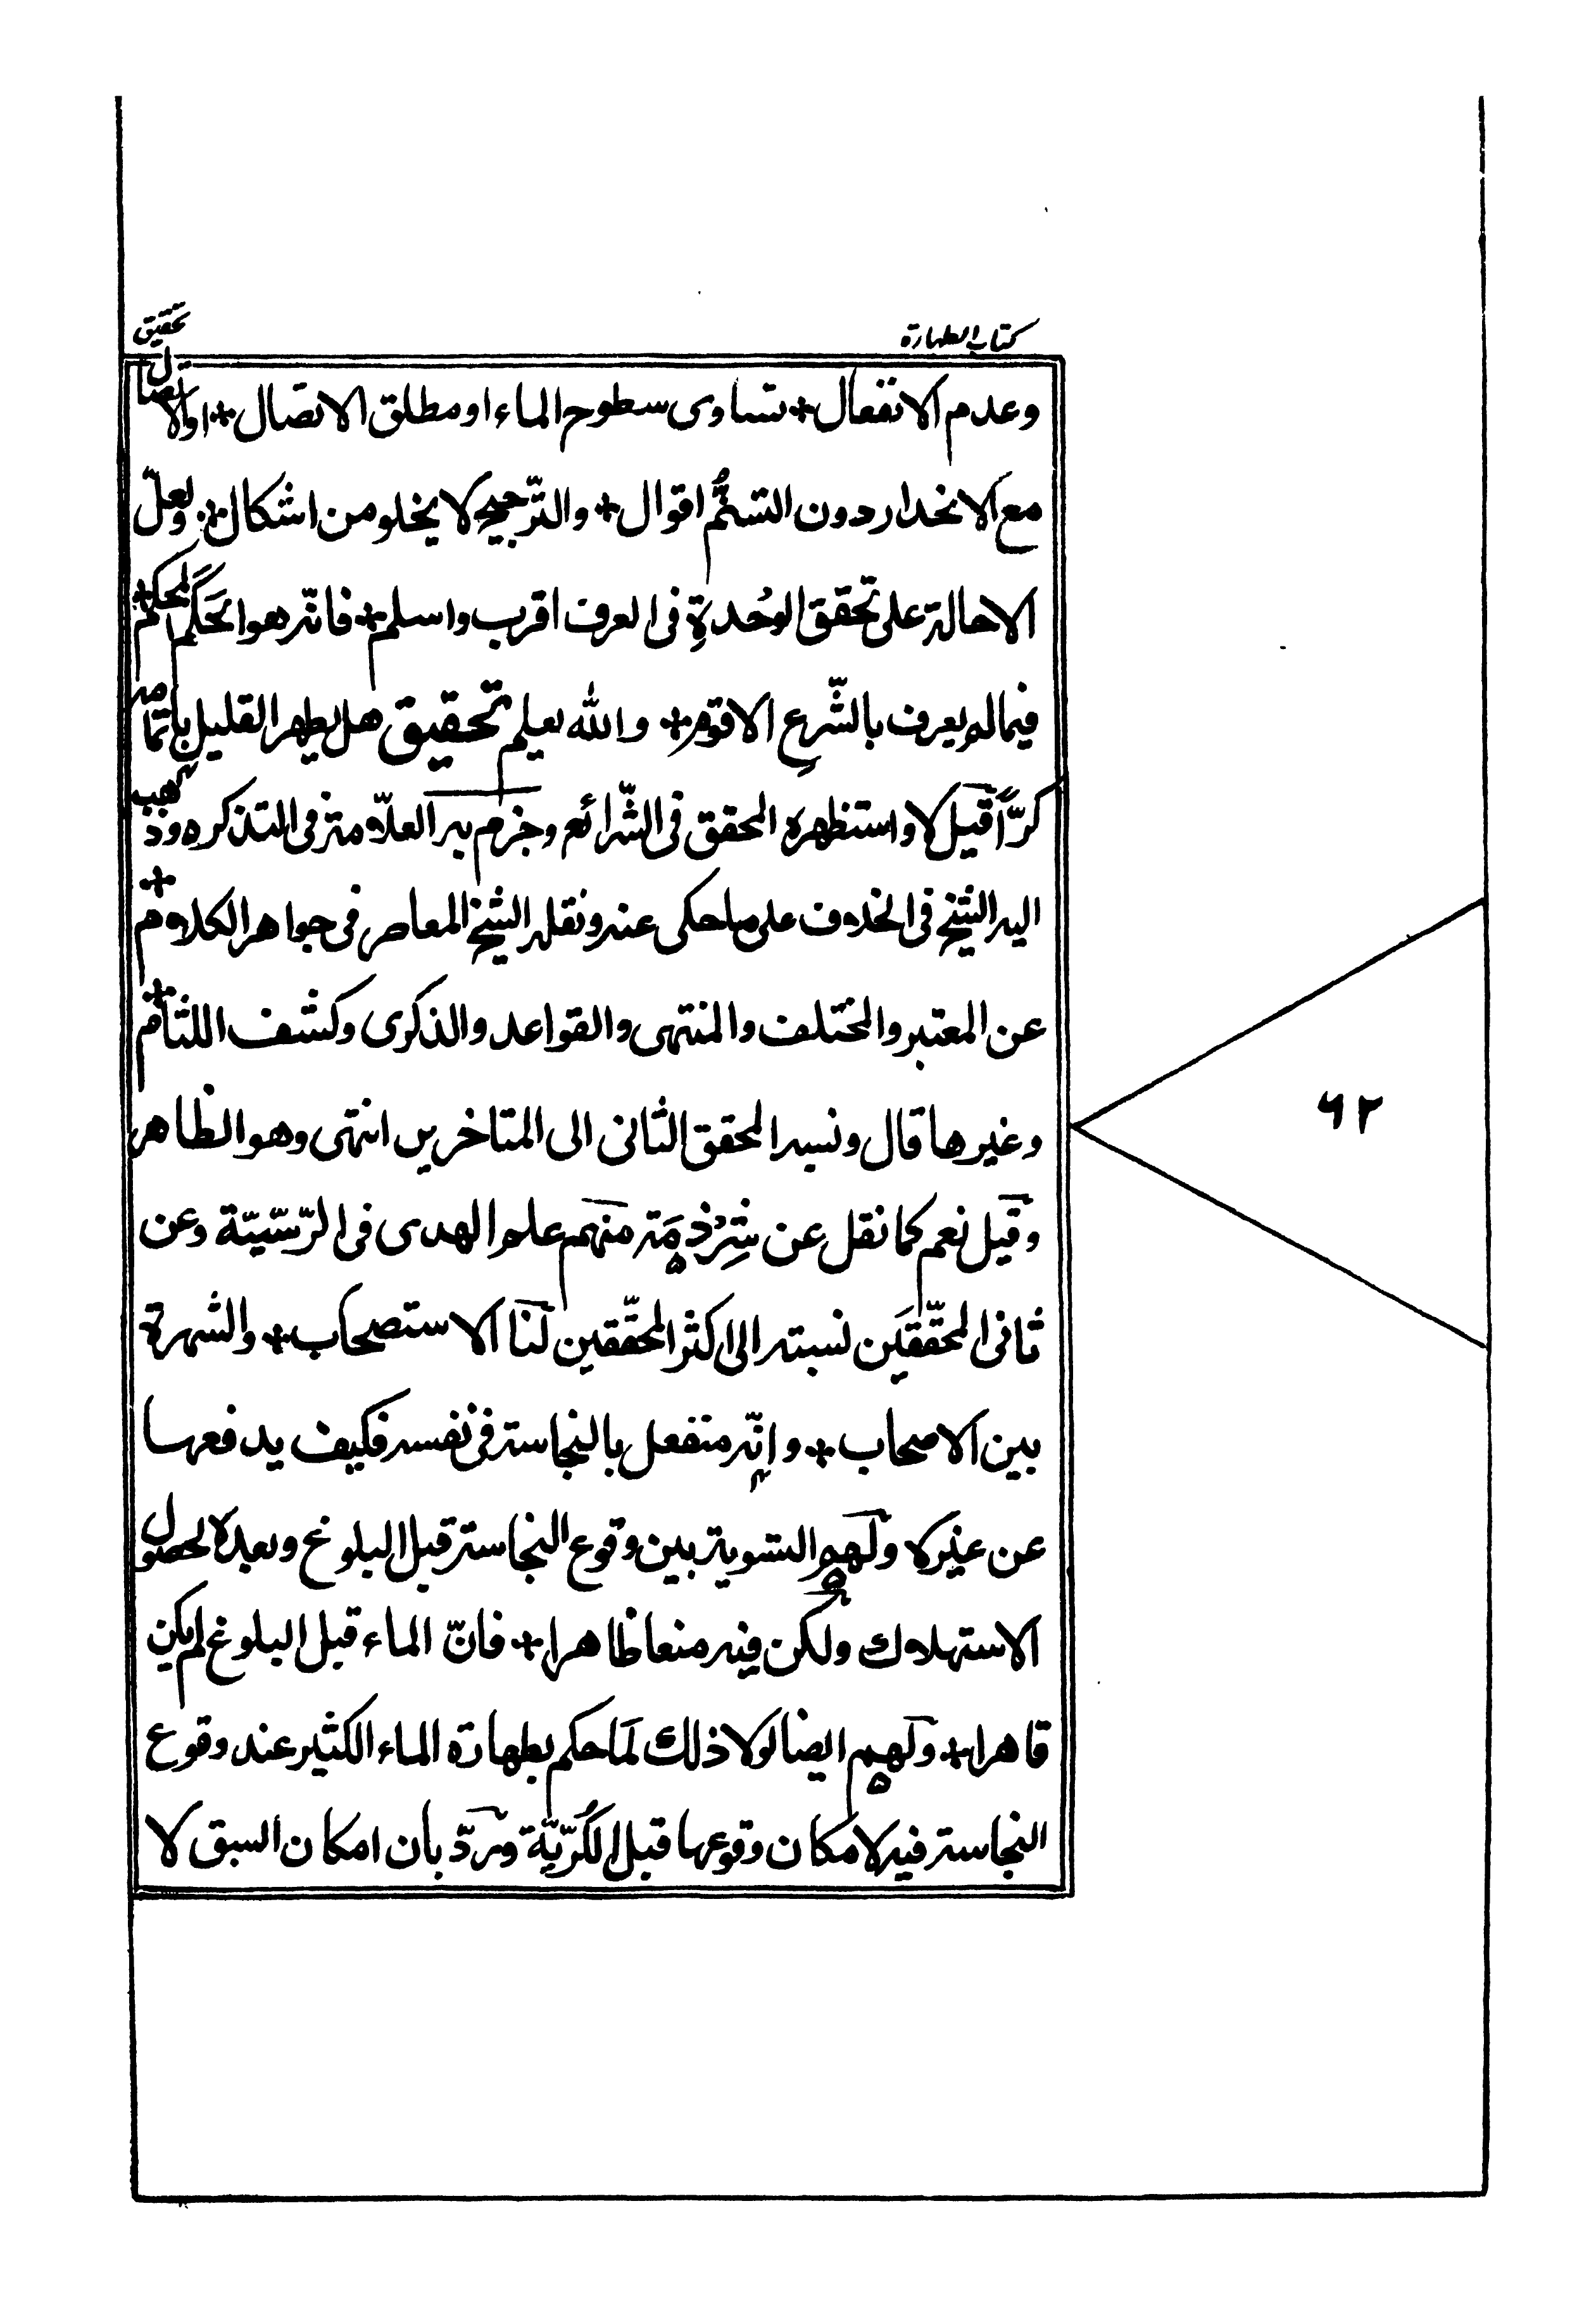 كتاب الطهارة
تحقيق
وعدم الانفعال ÷ تساوى سطوح الماء او مطلق الاتصال ÷ او الاتصال
مع الانحدار دون التسنُّم اقوال ÷ والتّرجيح لا يخلو من اشكال ÷ ولعلّ
الاحالة على تحقق الوَحُدةِ فى العرف اقرب واسلم ÷ فانّه هو الحَكَم المحكم ÷
فيما لم يعرف بالشّرعِ الاقوم ÷ والله يعلم تحقيق هل يطهر القليل باتمامه
كرّاً قيل لا واستظهره المحقق فى الشّرائع وجزم به العلّامة فى التذكره وذهب
اليه الشيخ فى الخلاف على ما حكى عنه ونقله الشيخ المعاصر فى جواهر الكلام ÷
عن المعتبر والمختلف والمنتهى والقواعد والذكرى وكشف اللثام ÷
وغيرها قال ونسبه المحقق الثانى الى المتاخرين انتهى وهو الظاهر
وقيل نعم كما نقل عن شِرْذِمَة منهم علم الهدى فى الرّسّيّة وعن
ثانى المحقّقَين نسبته الى اكثر المحقّقين لنا الاستصحاب ÷ والشهرة
بين الاصحاب ÷ وانّه منفعل بالنجاسة فى نفسه فكيف يدفعها
عن غيره ولهم التسوية بين وقوع النجاسة قبل البلوغ وبعده لحصول
الاستهلاك ولكن فيه منعا ظاهرا ÷ فانّ الماء قبل البلوغ لم يكن
قاهرا ÷ ولهم ايضا لولا ذلك لَما حكم بطهارة الماء الكثير عند وقوع
النجاسة فيه لامكان وقوعها قبل الكُرّيّة ويردّ بأن امكان السبق لا
٦٢